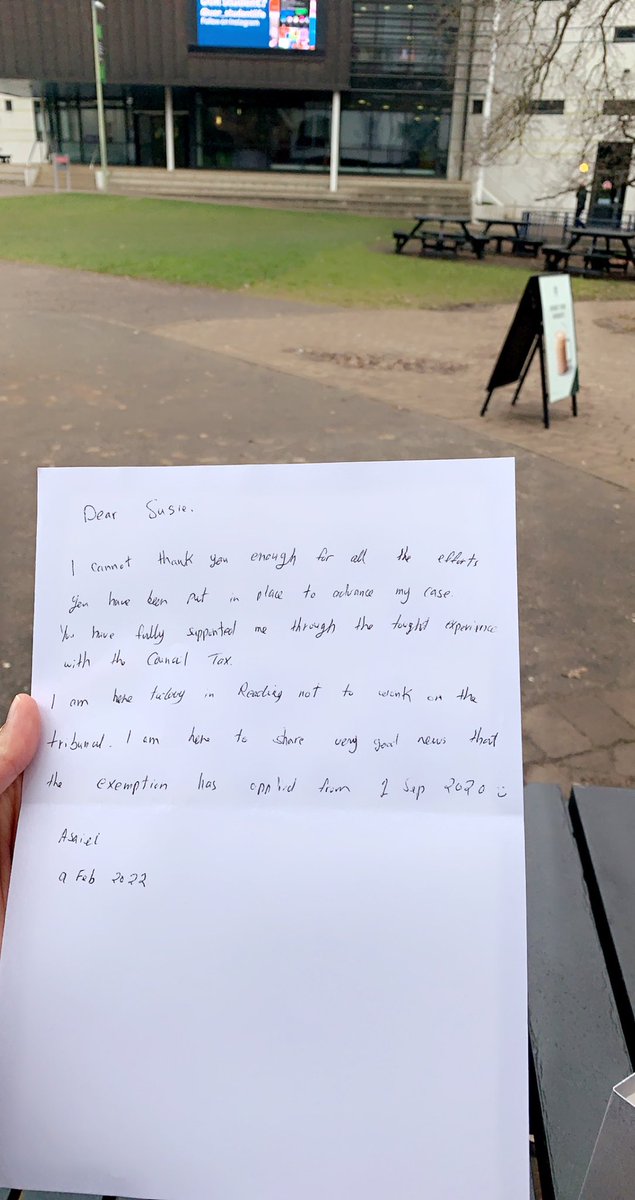 Follow on Instagram
Dear Susie.
I cannot thank you enough for all the efforts
you have been put in place to advance my case
You have fully supported me through the tought experience
with the Council Tax.
I am here today in Reading not to work on the
tribunal. I am here to share very good news that
the exemption has applied from 1 Sep 2020
9 Feb 2022